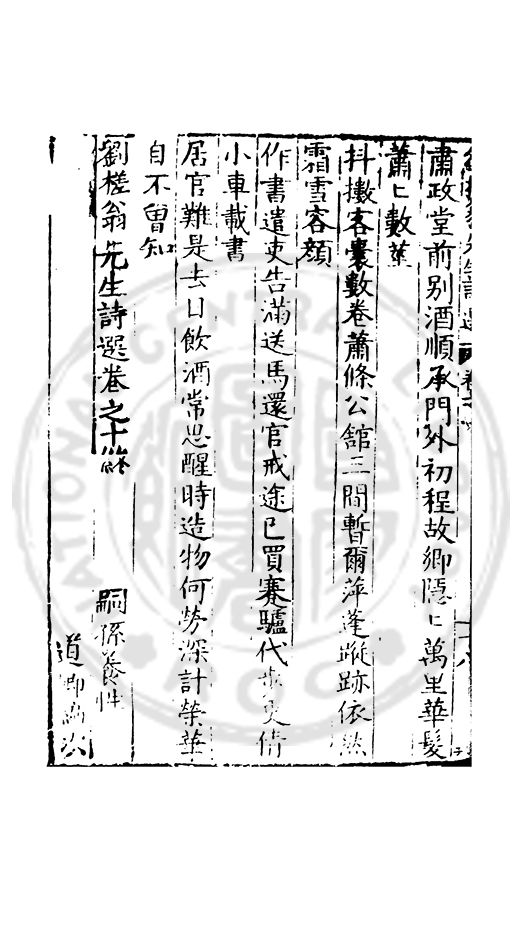 肅政堂前别酒順承門外初程故鄉隱〻萬里華髮
蕭〻數莖
抖擻客囊數卷蕭條公舘三間暫爾萍蓬蹤跡依然
霜雪容顏
作書遣吏告滿送馬還官戒途已買蹇驢代步更借
小車載書
居官難是去日飲酒常思醒時造物何勞深計榮華
自不曾知
劉槎翁先生詩選卷之十終
嗣孫養性
道卿
NATIONAL CENTRAL